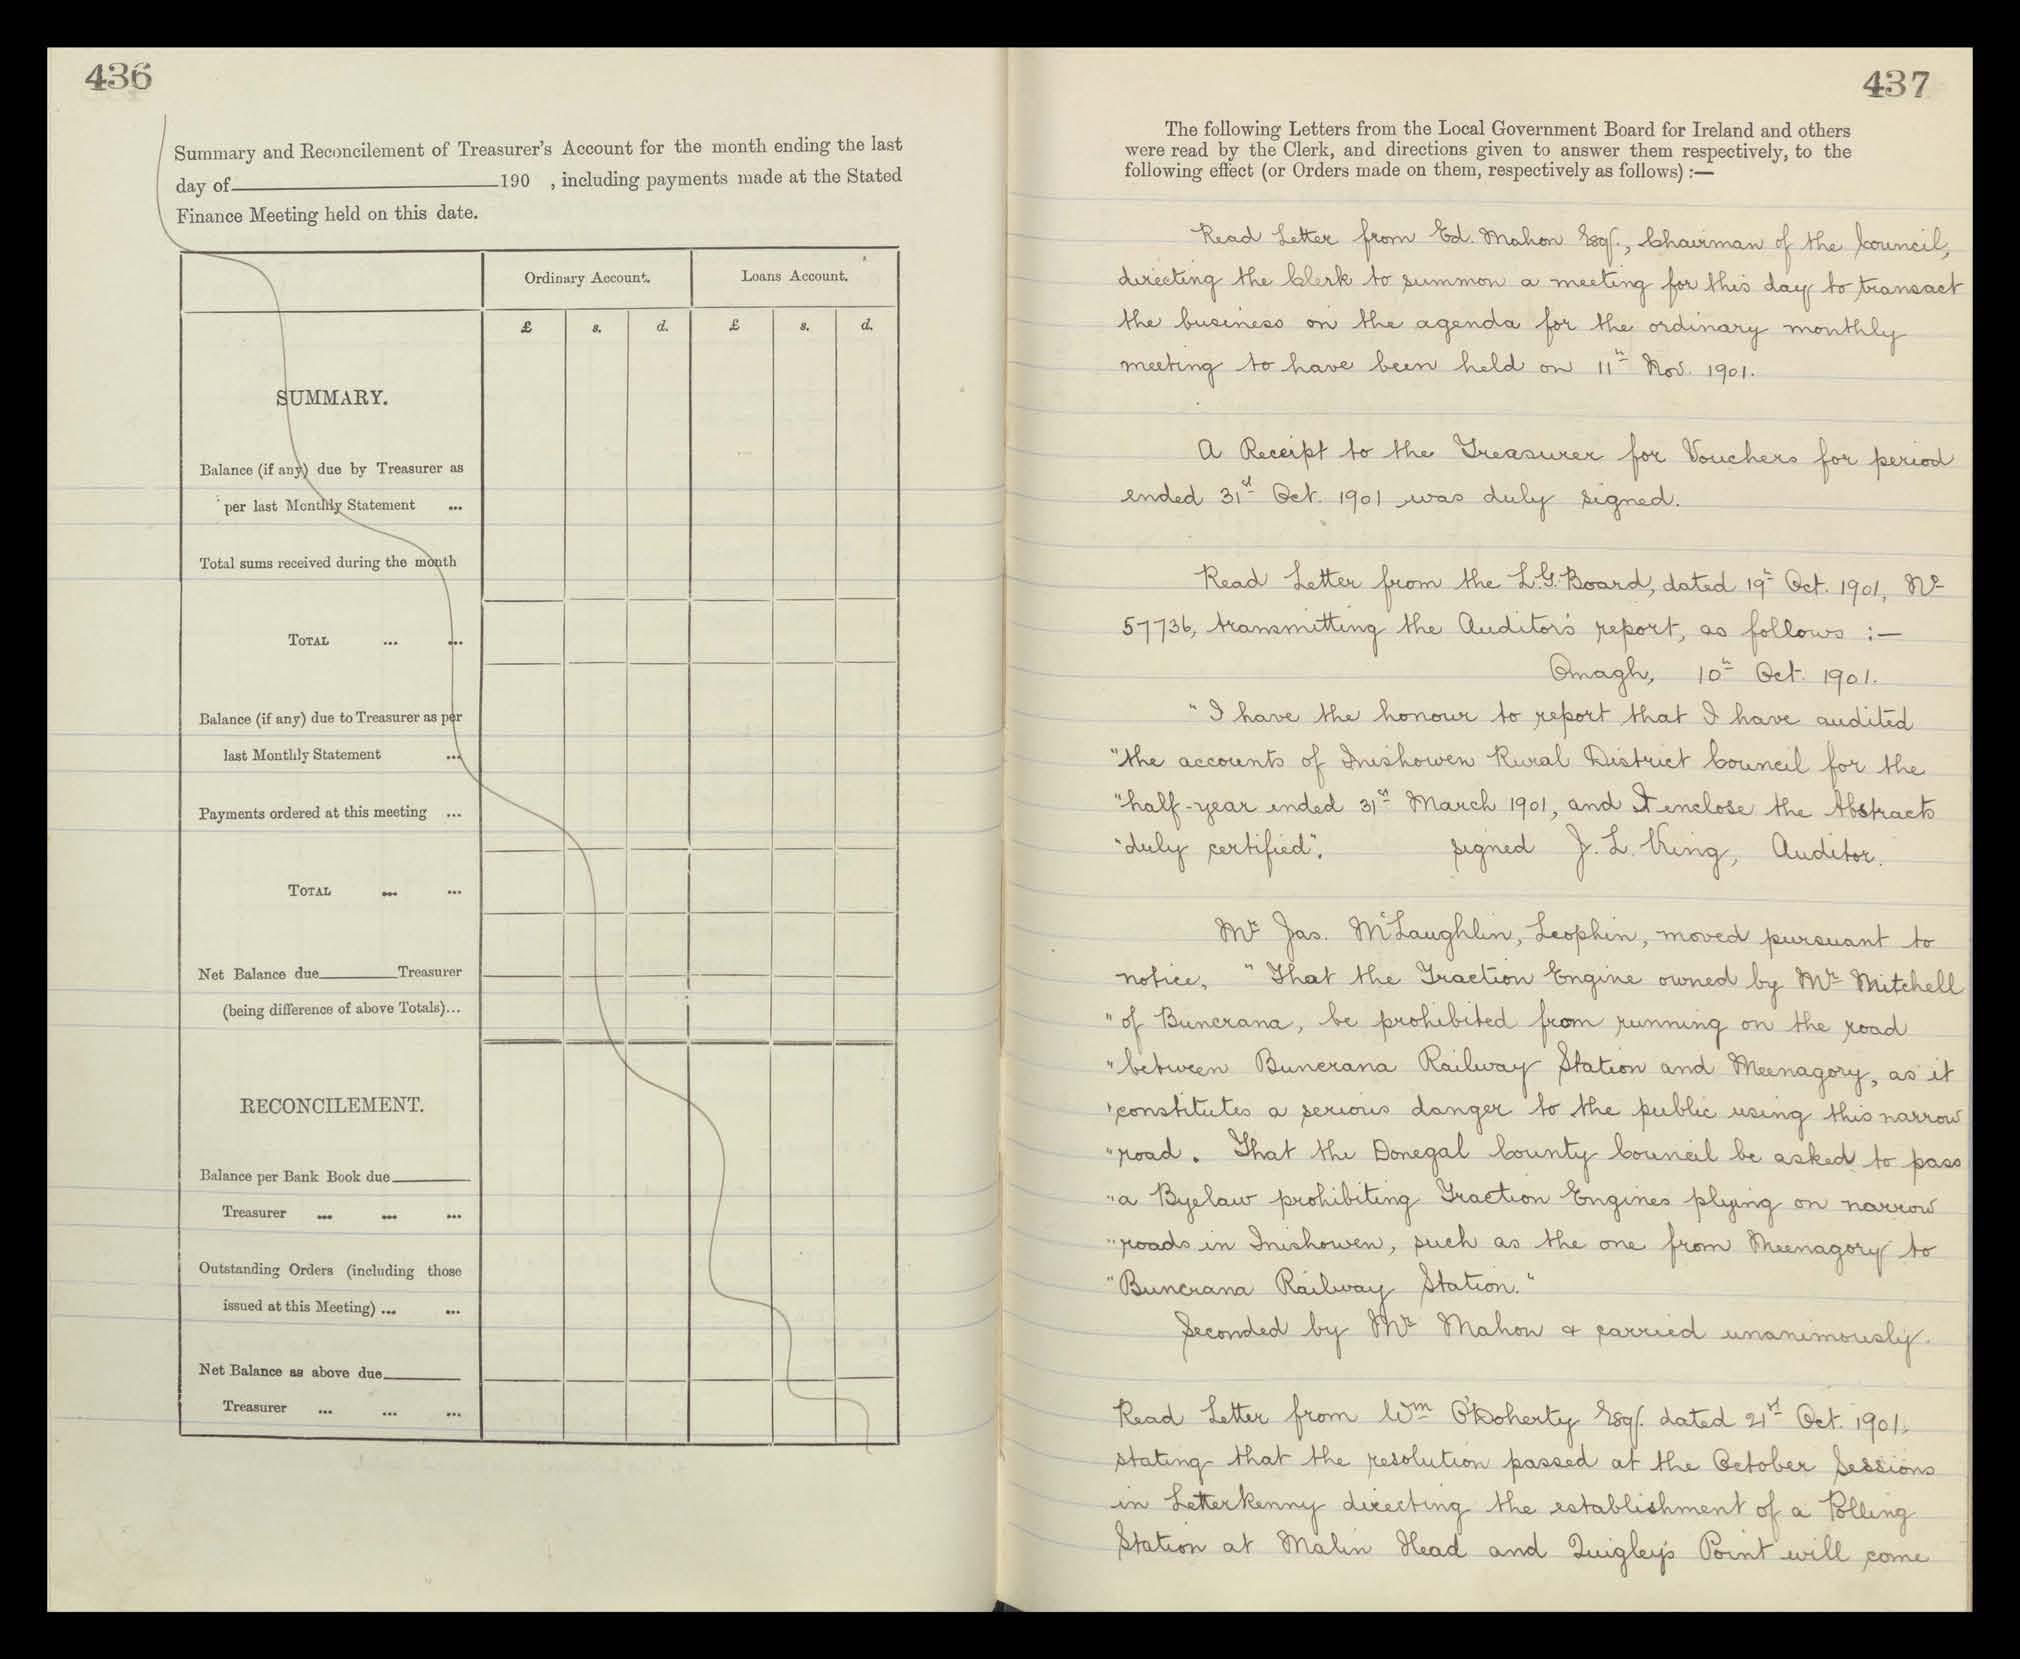 436
Summary and Reconcilement of Treasurer's Account for the month ending the last
day of 190 , including payments made at the Stated
Finance Meeting held on this date.
Ordinary Account. Loans Account.
£ s. d. £ s. d.
SUMMARY.
Balance (if any) due by Treasurer as
per last Monthly Statement ...
Total sums received during the month
TOTAL ... ...
Balance (if any) due to Treasurer as per
last Monthly Statement ...
Payments ordered at this meeting ...
TOTAL ... ...
Net Balance due Treasurer
(being difference of above Totals)...
RECONCILEMENT.
Balance per Bank Book due
Treasurer ... ... ...
Outstanding Orders (including those
issued at this Meeting) ... ...
Net Balance as above due
Treasurer ... ... ...
437
The following Letters from the Local Government Board for Ireland and others
were read by the Clerk, and directions given to answer them respectively, to the
following effect (or Orders made on them, respectively as follows) :—
Read Letter from Ed. Mahon Esq., Chairman of the Council,
directing the Clerk to summon a meeting for this day to transact
the business on the agenda for the ordinary monthly
meeting to have been held on 11th Nov. 1901.
A Receipt to the Treasurer for Vouchers for period
ended 31st Oct. 1901 was duly signed.
Read Letter from the L.G. Board, dated 19th Oct. 1901, No
57736, transmitting the Auditor's report, as follows :—
Omagh, 10th Oct. 1901.
"I have the honour to report that I have audited
"the accounts of Inishowen Rural District Council for the
"half-year ended 31st March 1901, and I enclose the Abstracts
"duly certified". signed J. L. King, Auditor.
Mr Jas. McLaughlin, Leophin, moved pursuant to
notice, "That the Traction Engine owned by Mr Mitchell
"of Buncrana, be prohibited from running on the road
"between Buncrana Railway Station and Meenagory, as it
"constitutes a serious danger to the public using this narrow
"road. That the Donegal County Council be asked to pass
"a Byelaw prohibiting Traction Engines plying on narrow
"roads in Inishowen, such as the one from Meenagory to
"Buncrana Railway Station."
Seconded by Mr Mahon & carried unanimously.
Read Letter from Wm O'Doherty Esq. dated 21st Oct. 1901.
stating that the resolution passed at the October Sessions
in Letterkenny directing the establishment of a Polling
Station at Malin Head and Quigley's Point will come